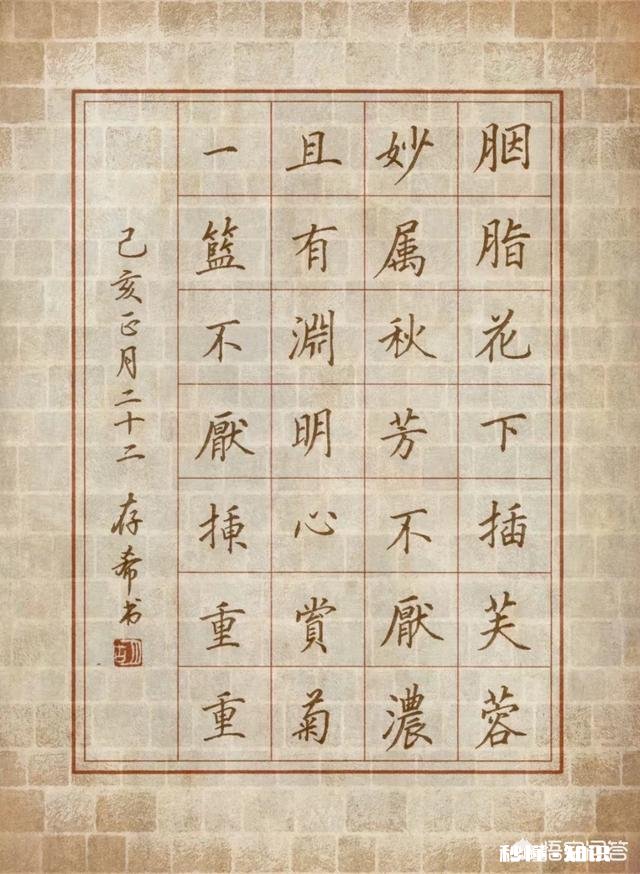 胭脂花下插芙蓉
妙属秋芳不厭濃
且有淵明心賞菊
一籃不厭挿重重
己亥正月二十二 存希书
悟空问答
秒懂·知识